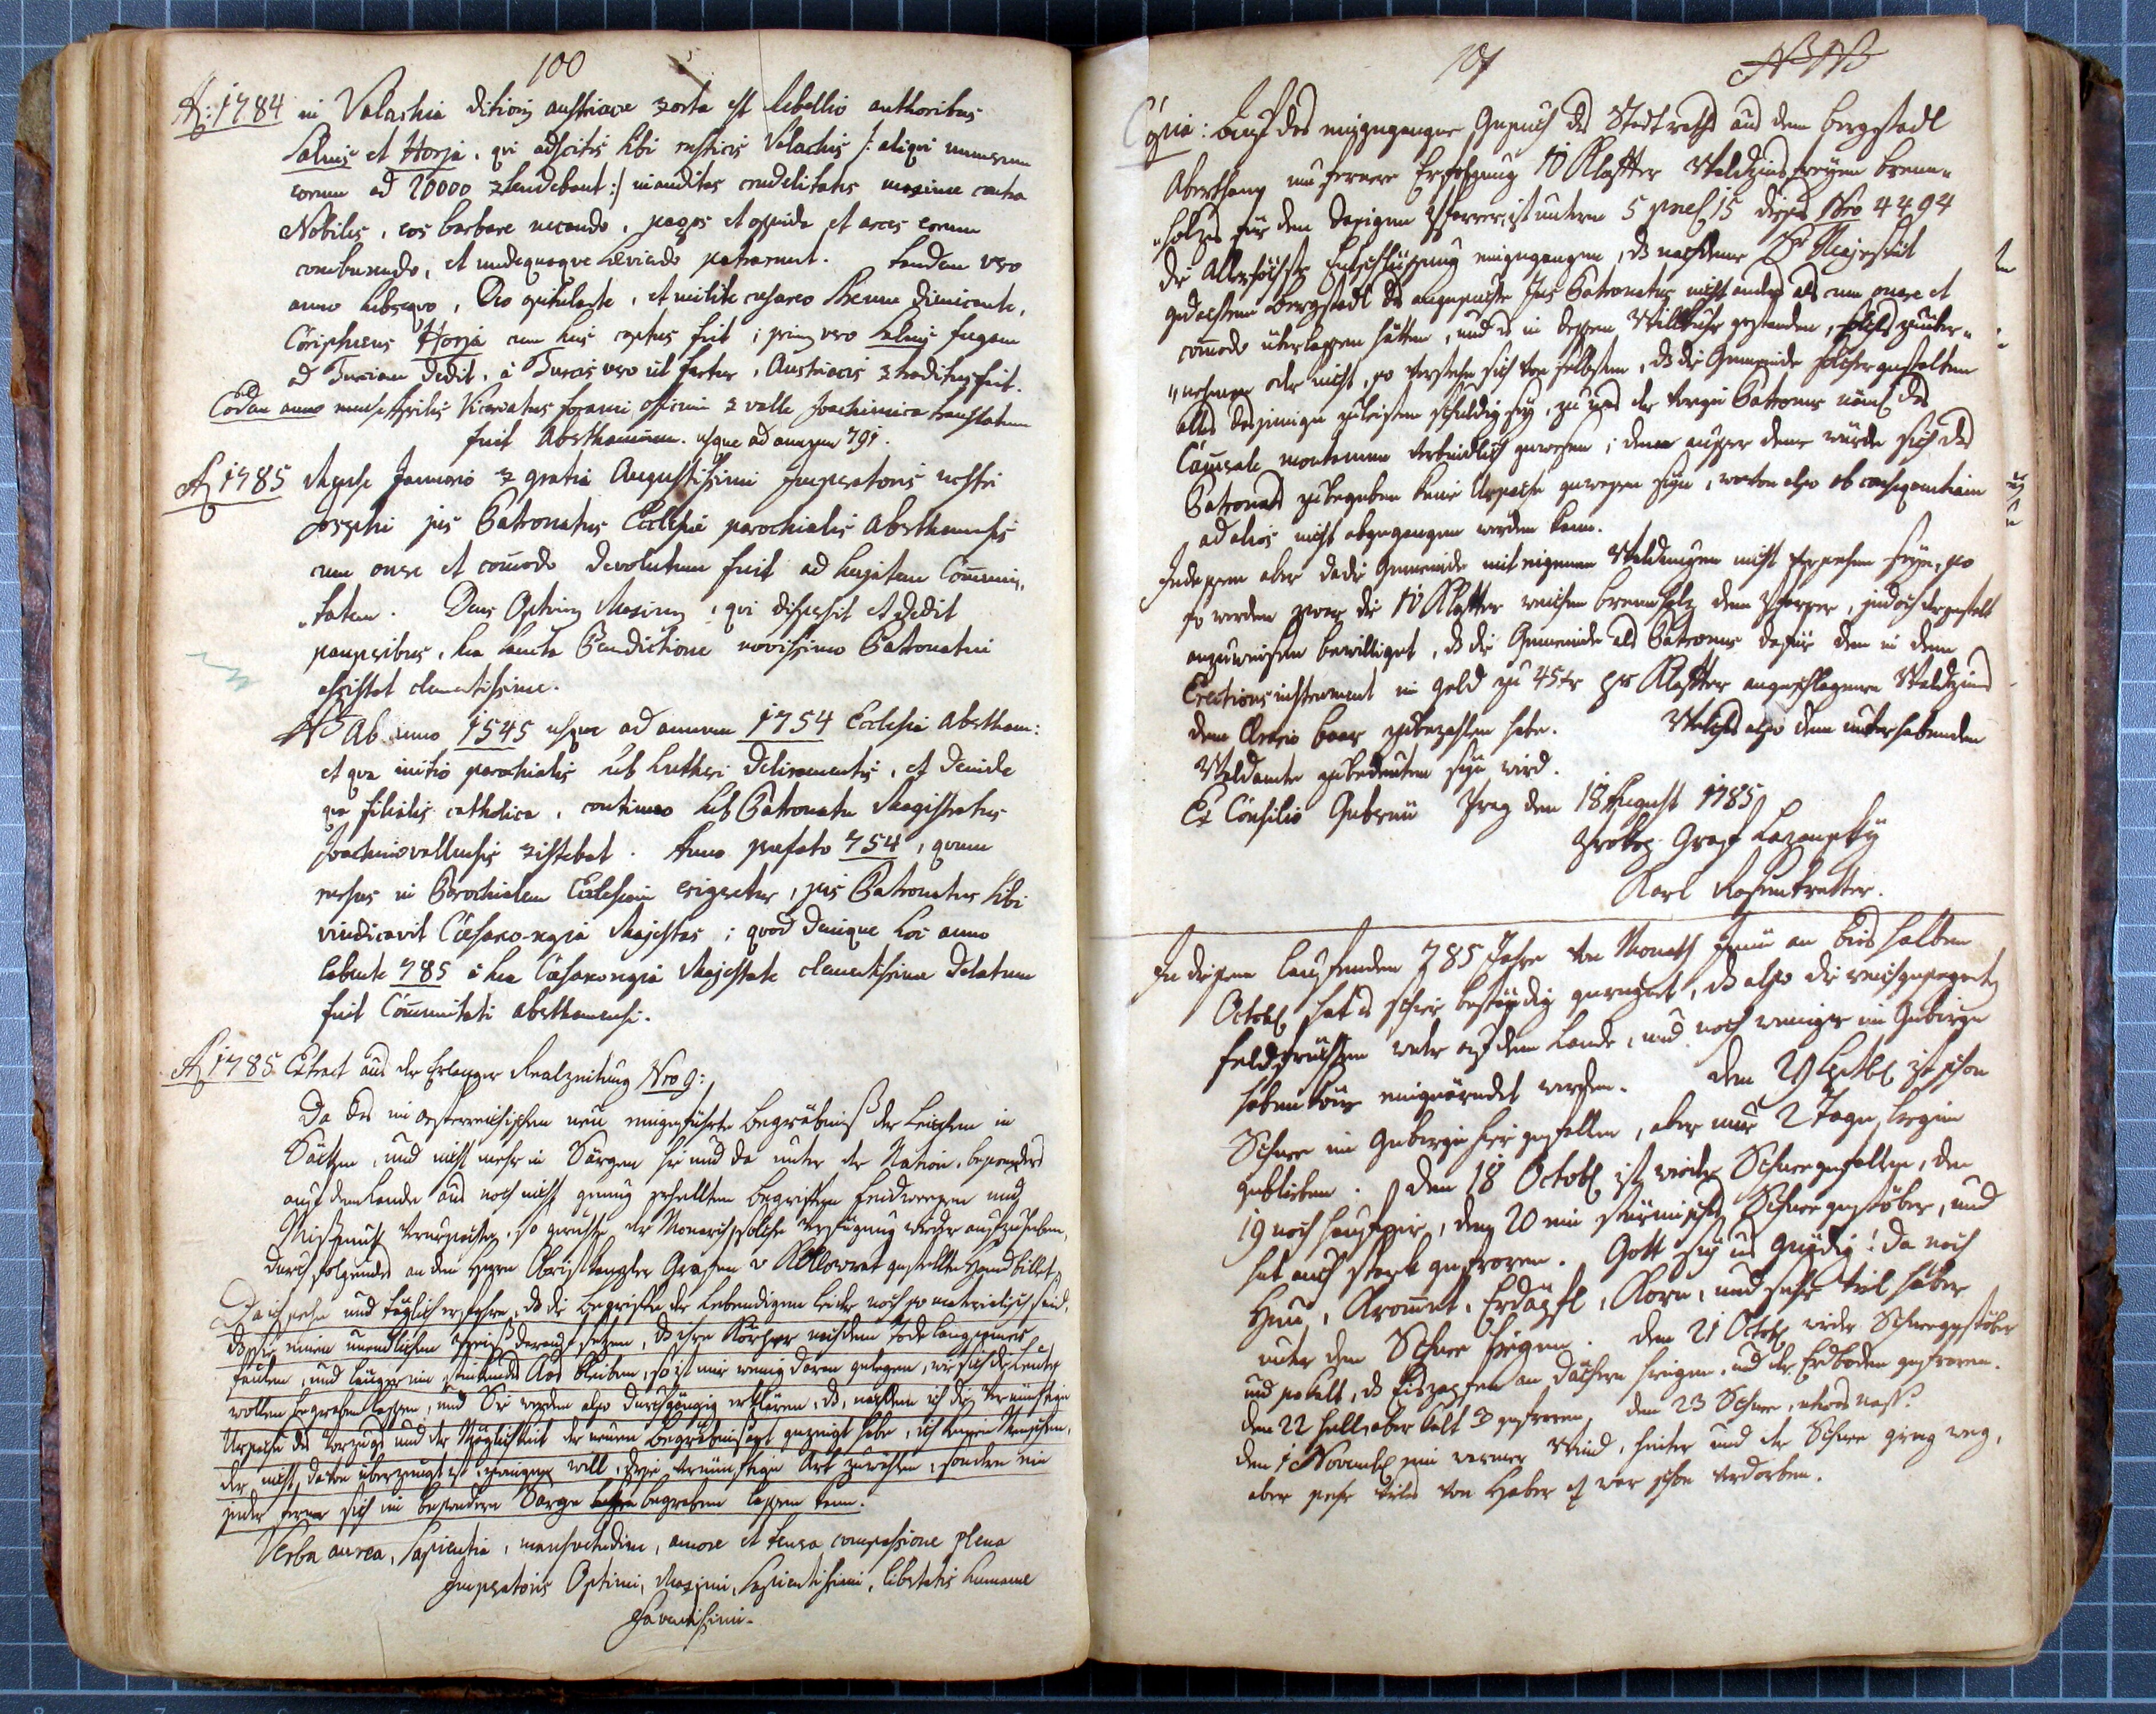 100
A: 1784 in Valachia ditionis austriacae exorta est rebellio authoribus
Salius et Horja, qui adscitis sibi rusticis Valachis /: aliqui numerum
eorum ad 20000 extendebant :/ inauditas crudelitates maxime contra
Nobiles, eos barbare necando, pagos et oppida et arces eorum
comburendo, et undequaque saeviendo patrarunt. Tandem vero
anno subsequo, Deo opitulante, et milite caesareo strenue dimicante,
Coriphaeus Horja cum suis captus fuit; prius vero Salius fugam
ad Turciam dedit, à Turcis vero ut fertur, Austriacis extraditus fuit.
Eodem anno mense Aprilis Vicariatus foranei officium ex valle Joachimica translatum
fuit Aberthamum. usque ad annum 791.
A 1785 Mense Januario ex gratia Augustissimi Imperatoris nostri
Josephi jus Patronatus Ecclesiae parochialis Aberthamensis
cum onere et comodo devolutum fuit ad hujatem Communi„
„tatem. Deus Optimus Maximus, qui dispersit et dedit
pauperibus, sua sancta Benedictione novissimo Patronatui
assistat clementissime.
NB Ab anno 1545 usque ad annum 1754 Ecclesia Abertham:
et qua initio parochialis sub Lutheri deliramentis, et deinde
qua filialis catholica, continuo sub Patronatu Magistratus
Joachimovallensis existebat. Anno praefato 754, quum
rursus in Parochialem Ecclesiam erigeretur, jus Patronatus sibi
vindicavit Caesareo-regia Majestas; quod denique hoc anno
labente 785 à sua Caesareo regia Majestate clementissime delatum
fuit Communitati aberthamensi.
A 1785 Extract aus der Erlanger Realzeitung Nro 9:
Da das im oesterreichischen neu eingeführte Begräbniß der Leichen in
Säcken, und nicht mehr in Särgen hie und da unter der Nation, besonders
auf dem Lande aus noch nicht genug erhellten Begriffen Leidwesen und
Mißmuth verursachte, so geruhte der Monarch solche Verfügung wieder aufzuheben,
durch folgendes an den Herrn Obristkanzler Grafen v Kollowrat gestellte Handbillet
Da ich sehe und täglich erfahre, dß die Begriffe der Lebendigen leider noch so materialisch sind,
dß sie einen unendlichen Preiß darauf setzen, dß ihre Körper nach dem Tode langsamer
faulen, und länger ein stinkendes Aas bleiben, so ist mir wenig daran gelegen, wie sich die Leute
wollen begraben lassen, und Sie werden also durchgängig erklären, dß, nachdem ich die vernünftige
Ursache des Vorzugs und der Möglichkeit der neuen Begräbnißart gezeigt habe, ich keinen Menschen,
der nicht davon überzeugt ist, zwingen will, diese vernünftige Art zu wählen, sondern ein
jeder ferner sich in besondern Särge begraben lassen kann.
Verba aurea, sapientia, mansvetudine, amore et tenera compassione plena
Imperatoris Optimi, Maximi, Sapientissimi, libertatis humanae
Faventissimi.
101 NB NB
Copia: Auf das eingegangene Gesuch des Stadtraths aus dem Bergstadl
Aberthamb um fernere Erfolgung 10 Klaffter Waldzinsfreyen Brenn„
„holzes für den dasigen Pfarrer, ist untern 5 praes 15 dieses Nro 4494
die Allerhöchste Entschlüßung eingegangen, dß nachdeme Se Majestät
gedachtem Bergstadl das angesuchte Jus Patronatus nicht anders als cum onere et
comodo überlassen hätten, und es in dessen Willkuhr gestanden, solches zu über„
„nehmen oder nicht, so verstehe sich von selbsten, dß die Gemeinde solcher gestalten
alles dasjenige zu leisten schuldig sey, zu was der vorige Patronus
Camerale montanum verbindlich gewesen; denn ausser deme würde sich des
Patronats zu begeben keine Ursache gewesen seyn, wovon also ob consequentiam
ad alios nicht abgegangen werden kann.
Indessen aber da die Gemeinde mit eigenen Waldungen nicht versehen seye, so
so werden zwar die 10 Klaffter weichen Brennholz dem Pfarrer, jedoch dergestalt
anzuweisen bewilliget, dß die Gemeinde als Patronus dafür den in dem
Erections instrument in Geld zu 45 kr per Klaffter angeschlagenen Waldzins
dem Aerario baar zubezahlen habe. Welches also dem unterhabenden
Waldamte zubedeuten seyn wird.
Ex Consilio Gubernii Prag den 18 August 1785
Prokop Graf Lazansky
Karl Rosenkratter.
In diesem laufenden 785 Jahre von Monath Junii an bies halben
Octobr hat es schier beständig geregnet, dß also die reichgesegnete
Feldfrüchten weder auf dem Lande, und noch weniger im Gebirge
haben können eingeärndet werden. Den 29 Septbr ist schon
Schnee im Gebirge hier gefallen, aber nur 2 Tage liegen
geblieben. Den 18 Octobr ist wieder Schnee gefallen, den
19 noch häufiger, den 20 ein stürmisches Schneegestöber, und
hat auch stark gefroren. Gott sey uns gnädig! da noch
Heu, Krommet, Erdäpfl, Korn, und sehr viel Haber
unter dem Schnee liegen. Den 21 Octobr wieder Schneegestöber
und so kalt, dß Eiszapfen an Dächern hiengen, und der Erdboden gefroren.
den 22 hell, aber kalt gefroren, den 23 Schnee, etwas naß.
den 1 Novembr ein warmer Wind, heiter und der Schnee gieng weg,
aber sehr vieles von Haber war schon verdorben.